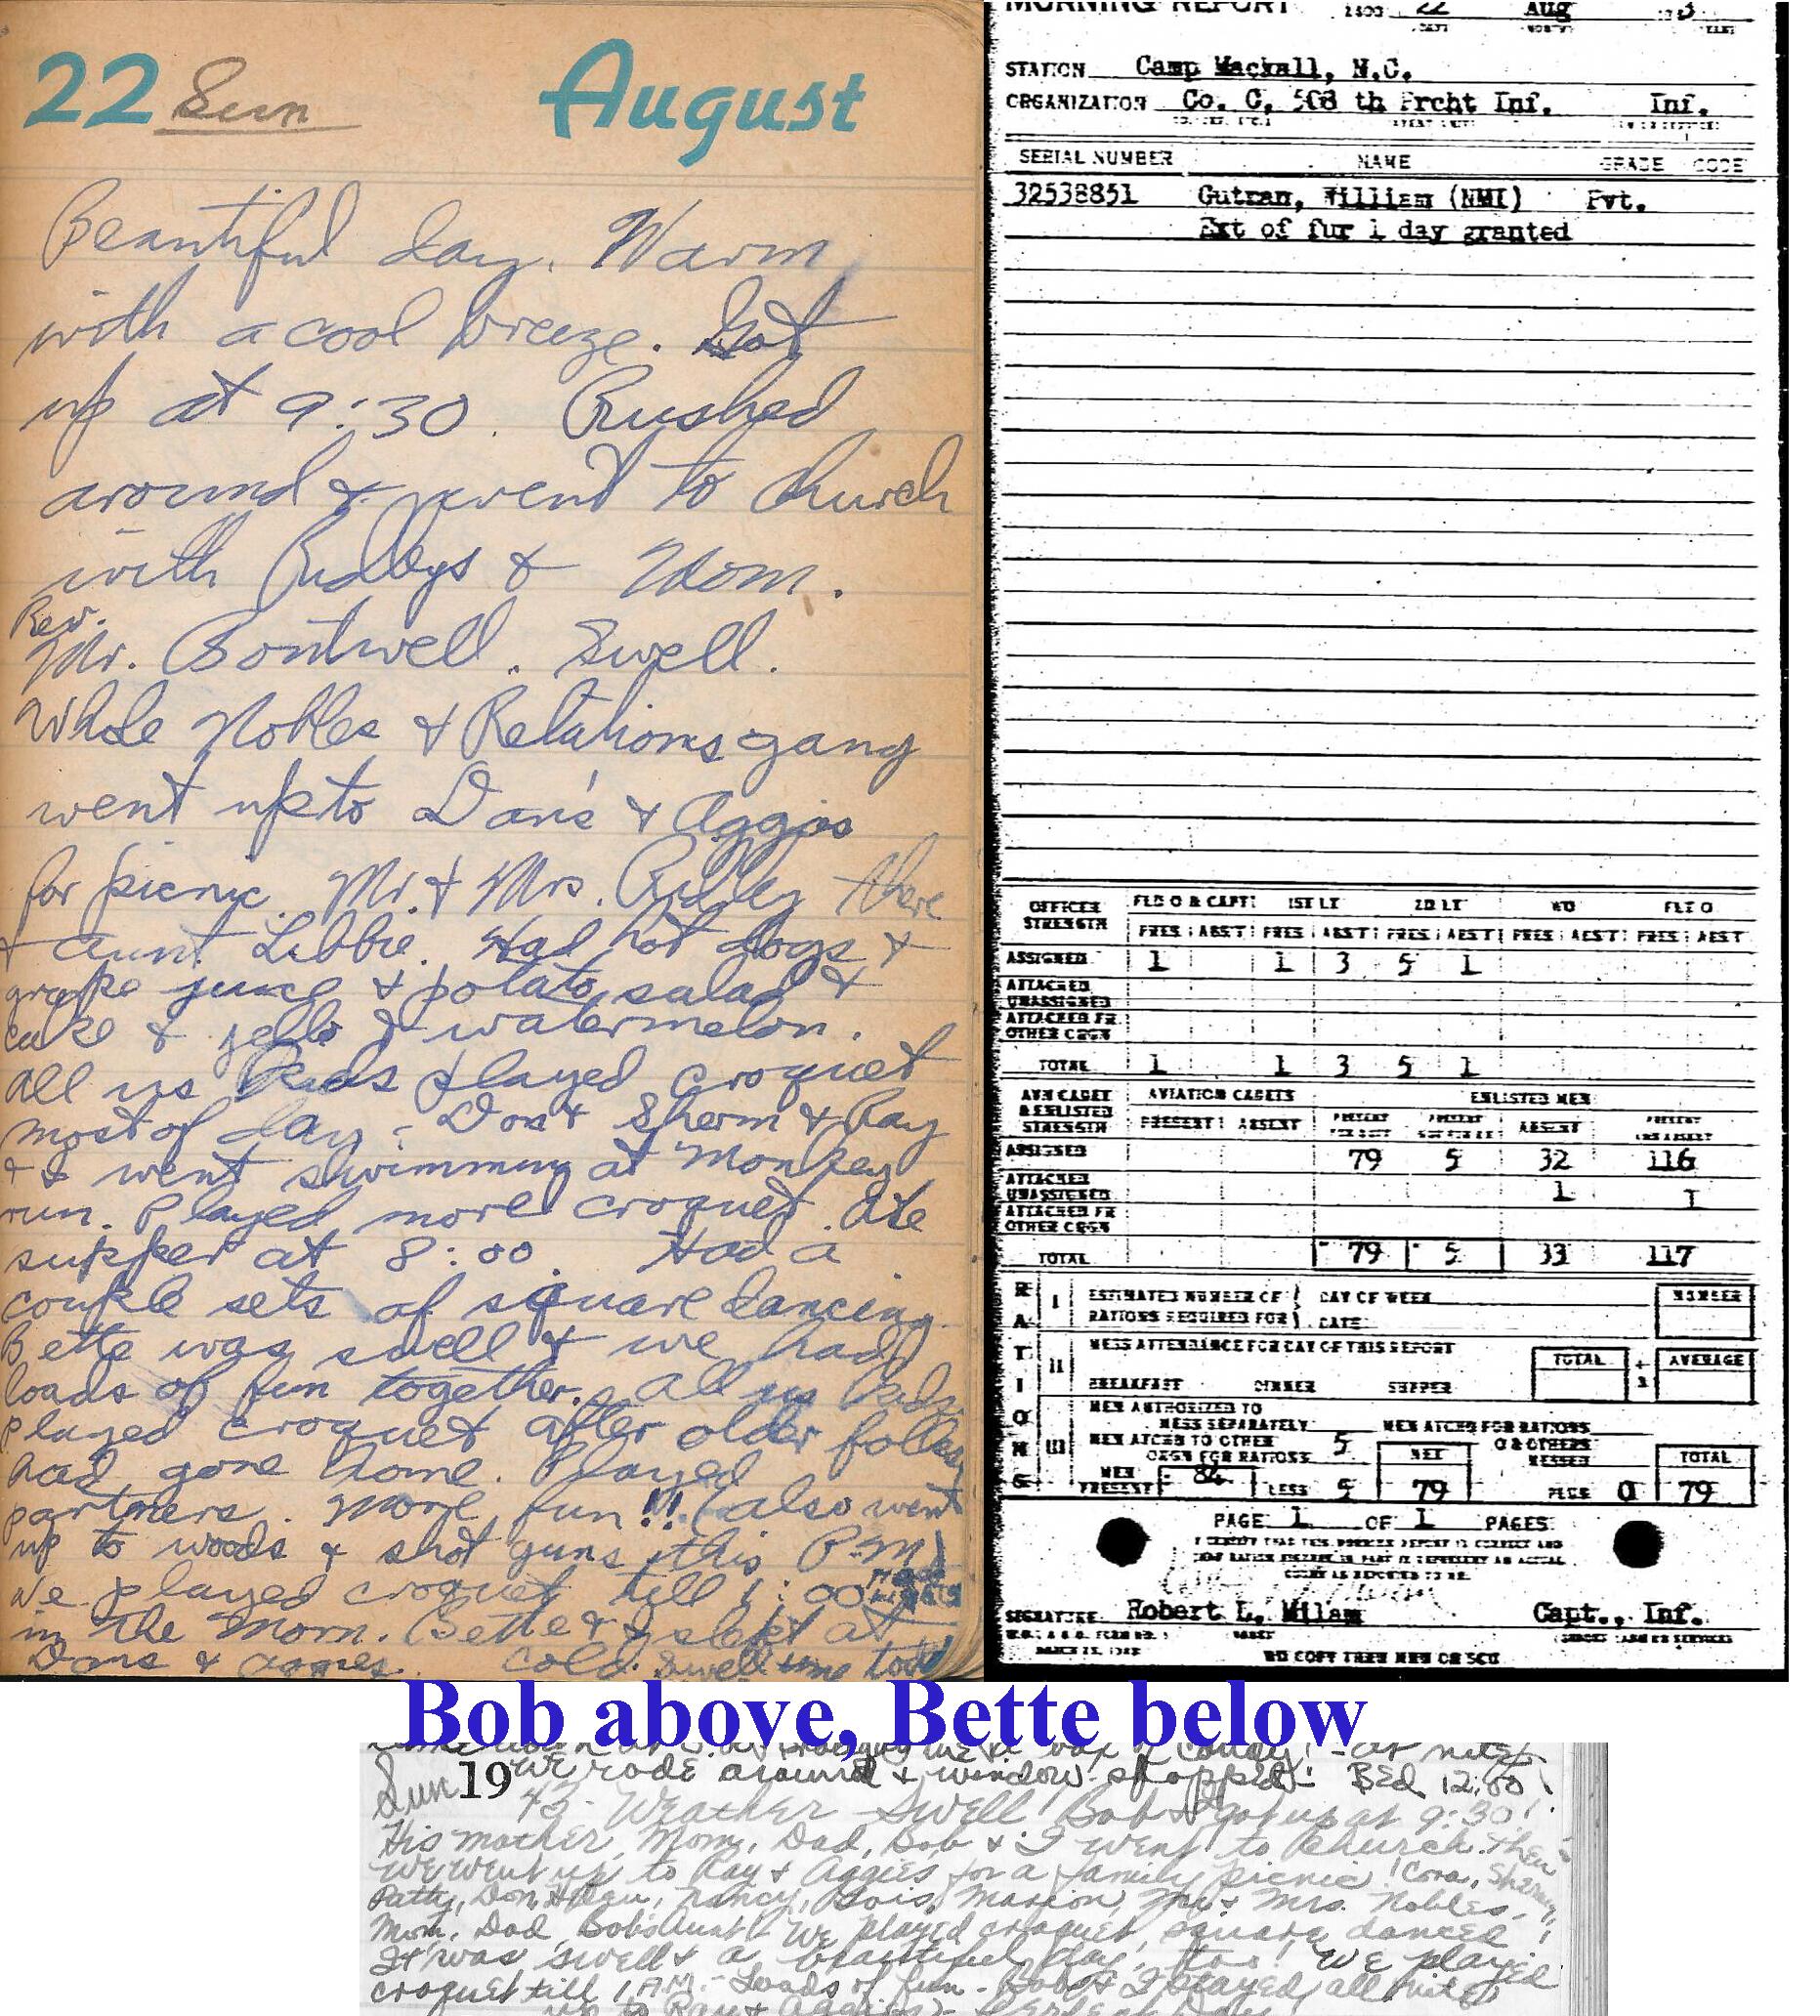 22 Sun August
Beautiful day. Warm
with a cool breeze. Got
up at 9:30. Rushed
around & went to church
with Ridleys & Mom.
Rev.
Mr. Bontwell. Swell.
Whole Nobles & Relations gang
went up to Dan's & Aggies
for picnic. Mr. & Mrs. Ridley there
& Aunt Libbie. Had hot dogs &
grape juice & potato salad &
cake & jello & watermelon.
All us kids played croquet
most of day. Don & Sherm & Ray
& I went swimming at Monkey
run. Played more croquet. Ate
supper at 8:00. Had a
couple sets of square dancing.
Bette was swell & we had
loads of fun together. All us kids
played croquet after older folks
had gone home. Played
partners. More fun!! (also went
up to woods & shot guns this P.M.)
We played croquet till 1:00
in the Morn. Bette & I slept at
Dans & Aggies. Cold. Swell time
MORNING REPORT 22 Aug
STATION Camp Mackall, N.C.
ORGANIZATION Co. C, 508 th Prcht Inf. Inf.
SERIAL NUMBER NAME GRADE CODE
32538851 Gutman, William (NMI) Pvt.
Ext of fur 1 day granted
OFFICER STRENGTH FLD O & CAPT 1ST LT 2D LT WO FLT O
PRES ABST PRES ABST PRES ABST PRES ABST PRES ABST
ASSIGNED 1 1 3 5 1
ATTACHED
UNASSIGNED
ATTACHED FR
OTHER ORGN
TOTAL 1 1 3 5 1
AVN CADET & ENLISTED STRENGTH AVIATION CADETS ENLISTED MEN
PRESENT ABSENT PRESENT PRESENT ABSENT PRESENT
ASSIGNED 79 5 32 116
ATTACHED
UNASSIGNED 1 1
ATTACHED FR
OTHER ORGN
TOTAL 79 5 33 117
RATIONS
I ESTIMATED NUMBER OF DAY OF WEEK NUMBER
RATIONS REQUIRED FOR DATE
II MESS ATTENDANCE FOR DAY OF THIS REPORT
TOTAL ÷ 3 AVERAGE
BREAKFAST DINNER SUPPER
MEN AUTHORIZED TO
MESS SEPARATELY MEN ATCHD FOR RATIONS
III MEN ATCHD TO OTHER
ORGN FOR RATIONS 5 NET O & OTHERS MESSED TOTAL
MEN PRESENT 84 LESS 5 79 PLUS 0 79
PAGE 1 OF 1 PAGES
I CERTIFY THAT THIS MORNING REPORT IS CORRECT AND
SIGNATURE Robert L. Milam Capt., Inf.
Bob above, Bette below
we rode around & window shopped! Bed 12:00!
Sun 19
43 - Weather - Swell Bob & I got up at 9:30!
His mother, Mom, Dad, Bob & I went to Church. Then
we went up to Ray & Aggies for a family picnic! Cora, Sherm,
Patty, Don, Nancy, Lois, Marion, Mr. & Mrs. Nobles,
Mom, Dad, Bobs Aunt! We played croquet, square danced!
It was swell & a beautiful day, too! We played
croquet till 1 A.M. - Loads of fun - Bob & I stayed all nite
up to Ray & Aggies -